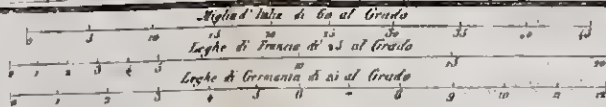 Miglia d'Italia di 60 al Grado
0 5 10 15 20 25 30 35 40 45
Leghe di Francia di 25 al Grado
0 1 2 3 4 5 10 15 20
Leghe di Germania di 15 al Grado
0 1 2 3 4 5 6 7 8 9 10 11 12